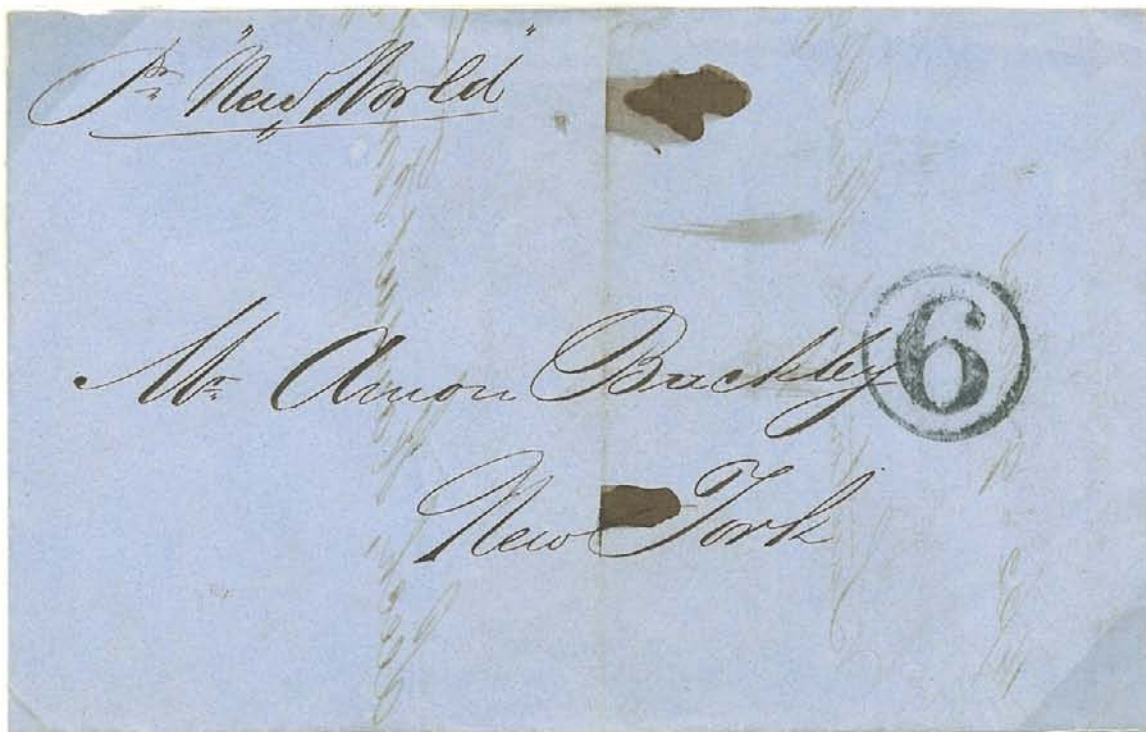 Pr "New World"
Mr Amon Buckley
6
New York